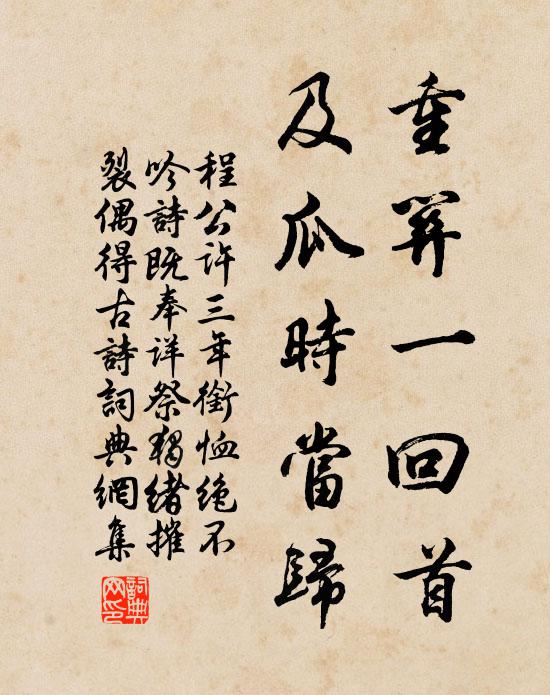 重一回首
及瓜時當歸
程公許三年銜恤絕不
吟詩既奉祥祭獨緒摧
裂偶得古詩詞典網集
詞典
网印